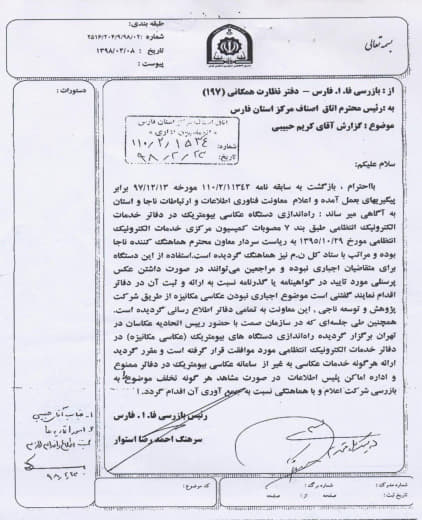 بسمه تعالی
طبقه بندی:
شماره: ۲۵۱۶/۲۰۴/۹/۹۸/۰۲
تاریخ: ۱۳۹۸/۰۲/۰۸
پیوست:
دستورات:
از: بازرسی فا.ا. فارس – دفتر نظارت همگانی (۱۹۷)
به: رئیس محترم اتاق اصناف مرکز استان فارس
موضوع: گزارش آقای کریم حبیبی
اتاق اصناف مرکز استان فارس
شماره: ۱۱۰/۲/۱۵۳۴
تاریخ: ۹۸/۲/۲۳
سلام علیکم:
بااحترام ، بازگشت به سابقه نامه ۱۱۰/۲/۱۱۳۴۲ مورخه ۹۷/۱۲/۱۳ برابر
پیگیریهای بعمل آمده و اعلام معاونت فناوری اطلاعات و ارتباطات ناجا و استان
به آگاهی میر ساند : راه‌اندازی دستگاه عکاسی بیومتریک در دفاتر خدمات
الکترونیک انتظامی طبق بند ۷ مصوبات کمیسیون مرکزی خدمات الکترونیک
انتظامی مورخ ۱۳۹۵/۱۰/۲۹ به ریاست سردار معاون محترم هماهنگ کننده ناجا
بوده و مراتب با ستاد کل ن.م نیز هماهنگ گردیده است.استفاده از این دستگاه
برای متقاضیان اجباری نبوده و مراجعین می‌توانند در صورت داشتن عکس
پرسنلی مورد تایید در گواهینامه یا گذرنامه نسبت به ارائه و ثبت آن در دفاتر
اقدام نمایند گفتنی است موضوع اجباری نبودن عکاسی مکانیزه از طریق شرکت
پژوهش و توسعه ناجی , این معاونت به تمامی دفاتر اطلاع رسانی گردیده است.
همچنین طی جلسه‌ای که در سازمان صمت با حضور رییس اتحادیه عکاسان در
تهران برگزار گردیده راه‌اندازی دستگاه های بیومتریک (عکاسی مکانیزه) در
دفاتر خدمات الکترونیک انتظامی مورد موافقت قرار گرفته است و مقرر گردید
ارائه هرگونه خدمات عکاسی به غیر از سامانه عکاسی بیومتریک در دفاتر ممنوع
و اداره اماکن پلیس اطلاعات در صورت مشاهد هر گونه تخلف موضوع به
بازرسی شرکت اعلام و با هماهنگی نسبت به جمع آوری آن اقدام گردد.
رئیس بازرسی فا.ا. فارس
سرهنگ احمد رضا استوار
شماره مدرک:
تاریخ ثبت دفتر:
شماره برگه:
صفحه از: صفحه
کد موضوع: